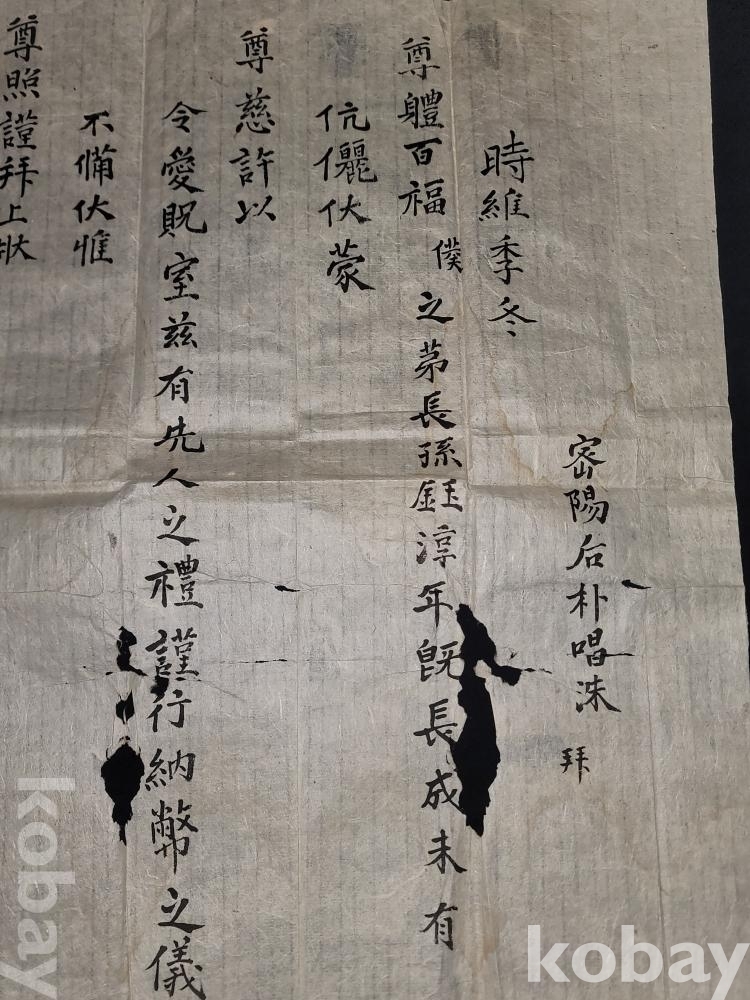 密陽后朴唱洙 拜
時維季冬
尊軆百福 僕之苐長孫鈺淳年旣長成未有
伉儷伏蒙
尊慈許以
令愛貺室玆有先人之禮謹行納幣之儀
不備伏惟
尊照謹拜上狀
kobay
kobay